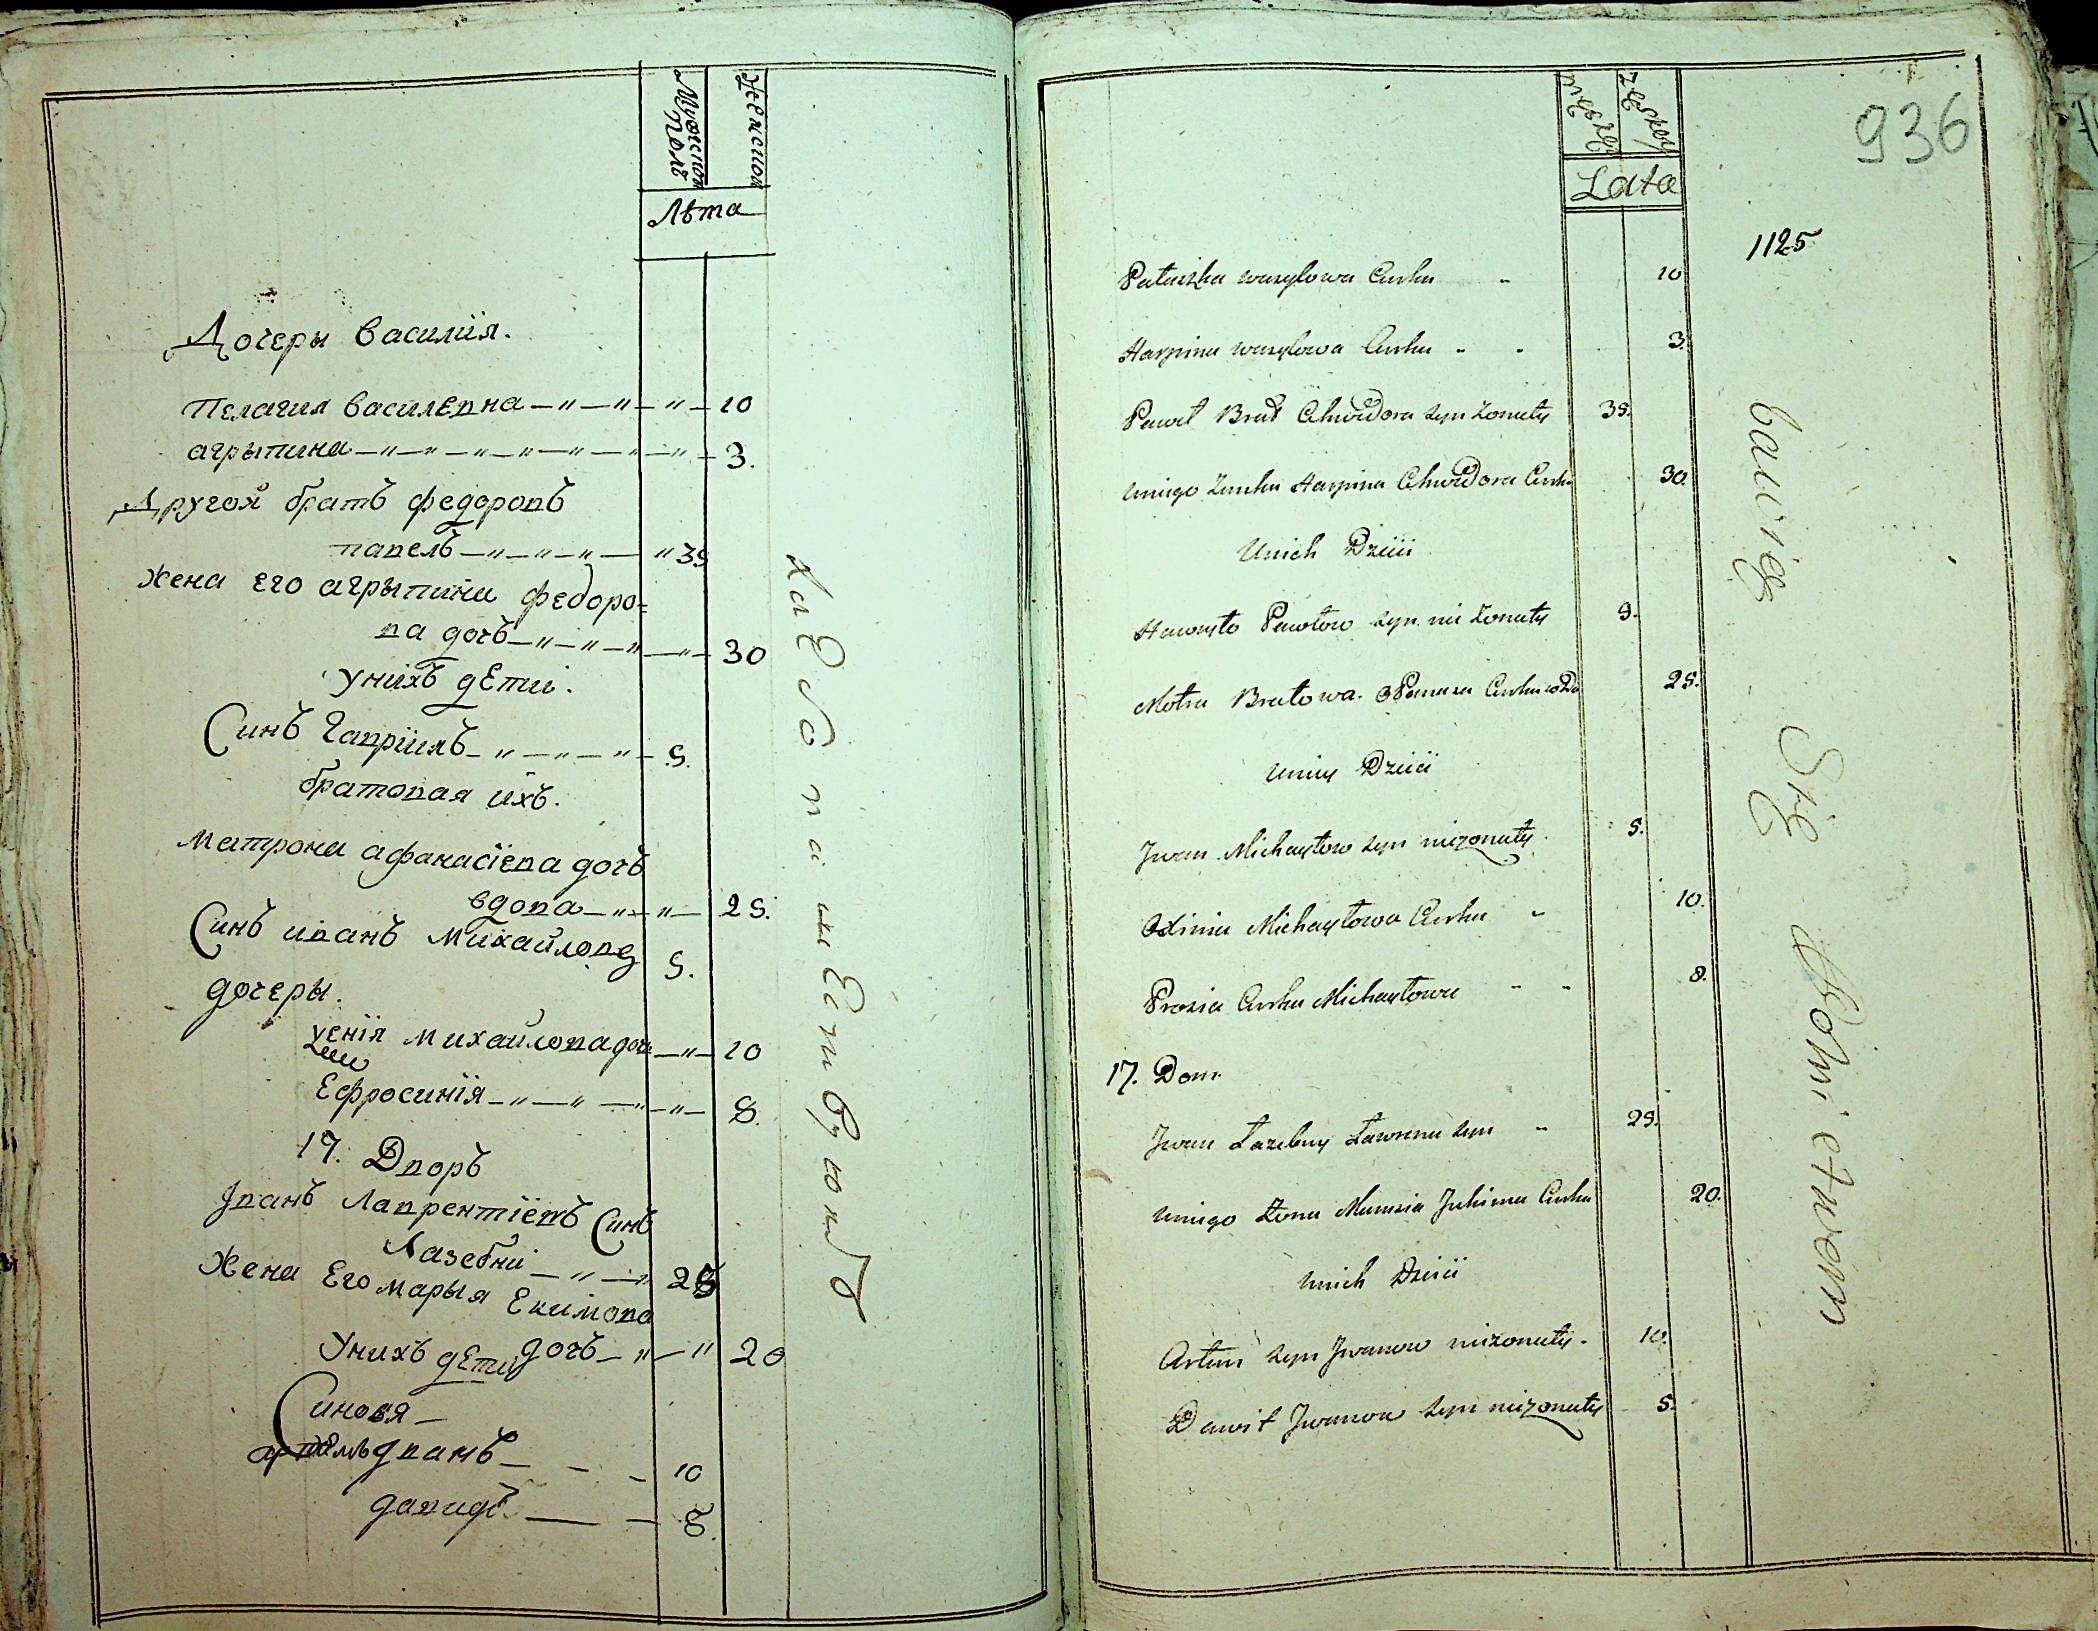 Мужеской Полъ
Женской
Лѣта
Дочеры василія.
Пелагия василевна 10
агрыпина 3.
Другой братъ федоровъ
павелъ 35
Жена его агрыпина федоро=
ва дочъ 30
Унихъ дети.
Синъ Гавріилъ 9.
братовая ихъ.
Матрона афанасіева дочъ
вдова 25.
Синъ иванъ Михайловъ 5.
дочеры.
Михайлова дочъ 10
Ефросинія 8.
17. Дворъ
Іванъ Лаврентіевъ Синъ
Лазебни 25
Жена Его марыя Екимова
дочъ 20
Унихъ дети
Синовя
артемъ іванъ 10
давидъ 8.
936
Lata
1125
Wasylowa Curka 10
Harpina wasylowa Curka 3.
Paweł Brat Chwedora syn żonaty 35.
Uniego żunka Harpina Chwedora Curka 30.
Unich Dzieci
Hawryło Pawłow syn nie żonaty 9.
Motra Bratowa Panasa Curka wdo 25.
Uniey Dzieci
Jwan Michayłow syn nieżonaty. 5.
Oxinia Michayłowa Curka 10.
Prosia Curka Michayłowa 8.
17. Dom.
Jwan Łazebny Ławrena syn 25.
Uniego Żona Marusia Juhima Curka 20.
Unich Dzieci
Artem syn Jwanow nieżonaty. 10.
Dawid Jwanow syn nieżonaty 8.
bawią Się